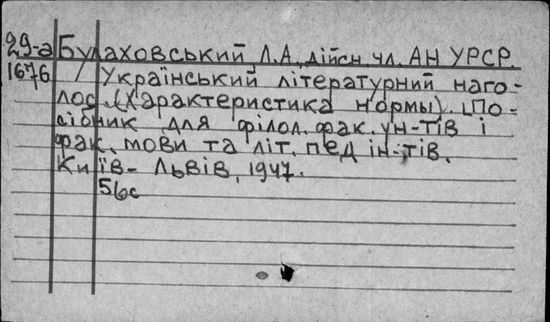 29-а Булаховський, Л.А., дійсн. чл. АН УРСР.
1676 Український літературний наго-
лос. (Характеристика нормы). По-
сібник для філол. фак. ун-тів і
фак. мови та літ. пед ін-тів.
Київ- Львів, 1947.
56с